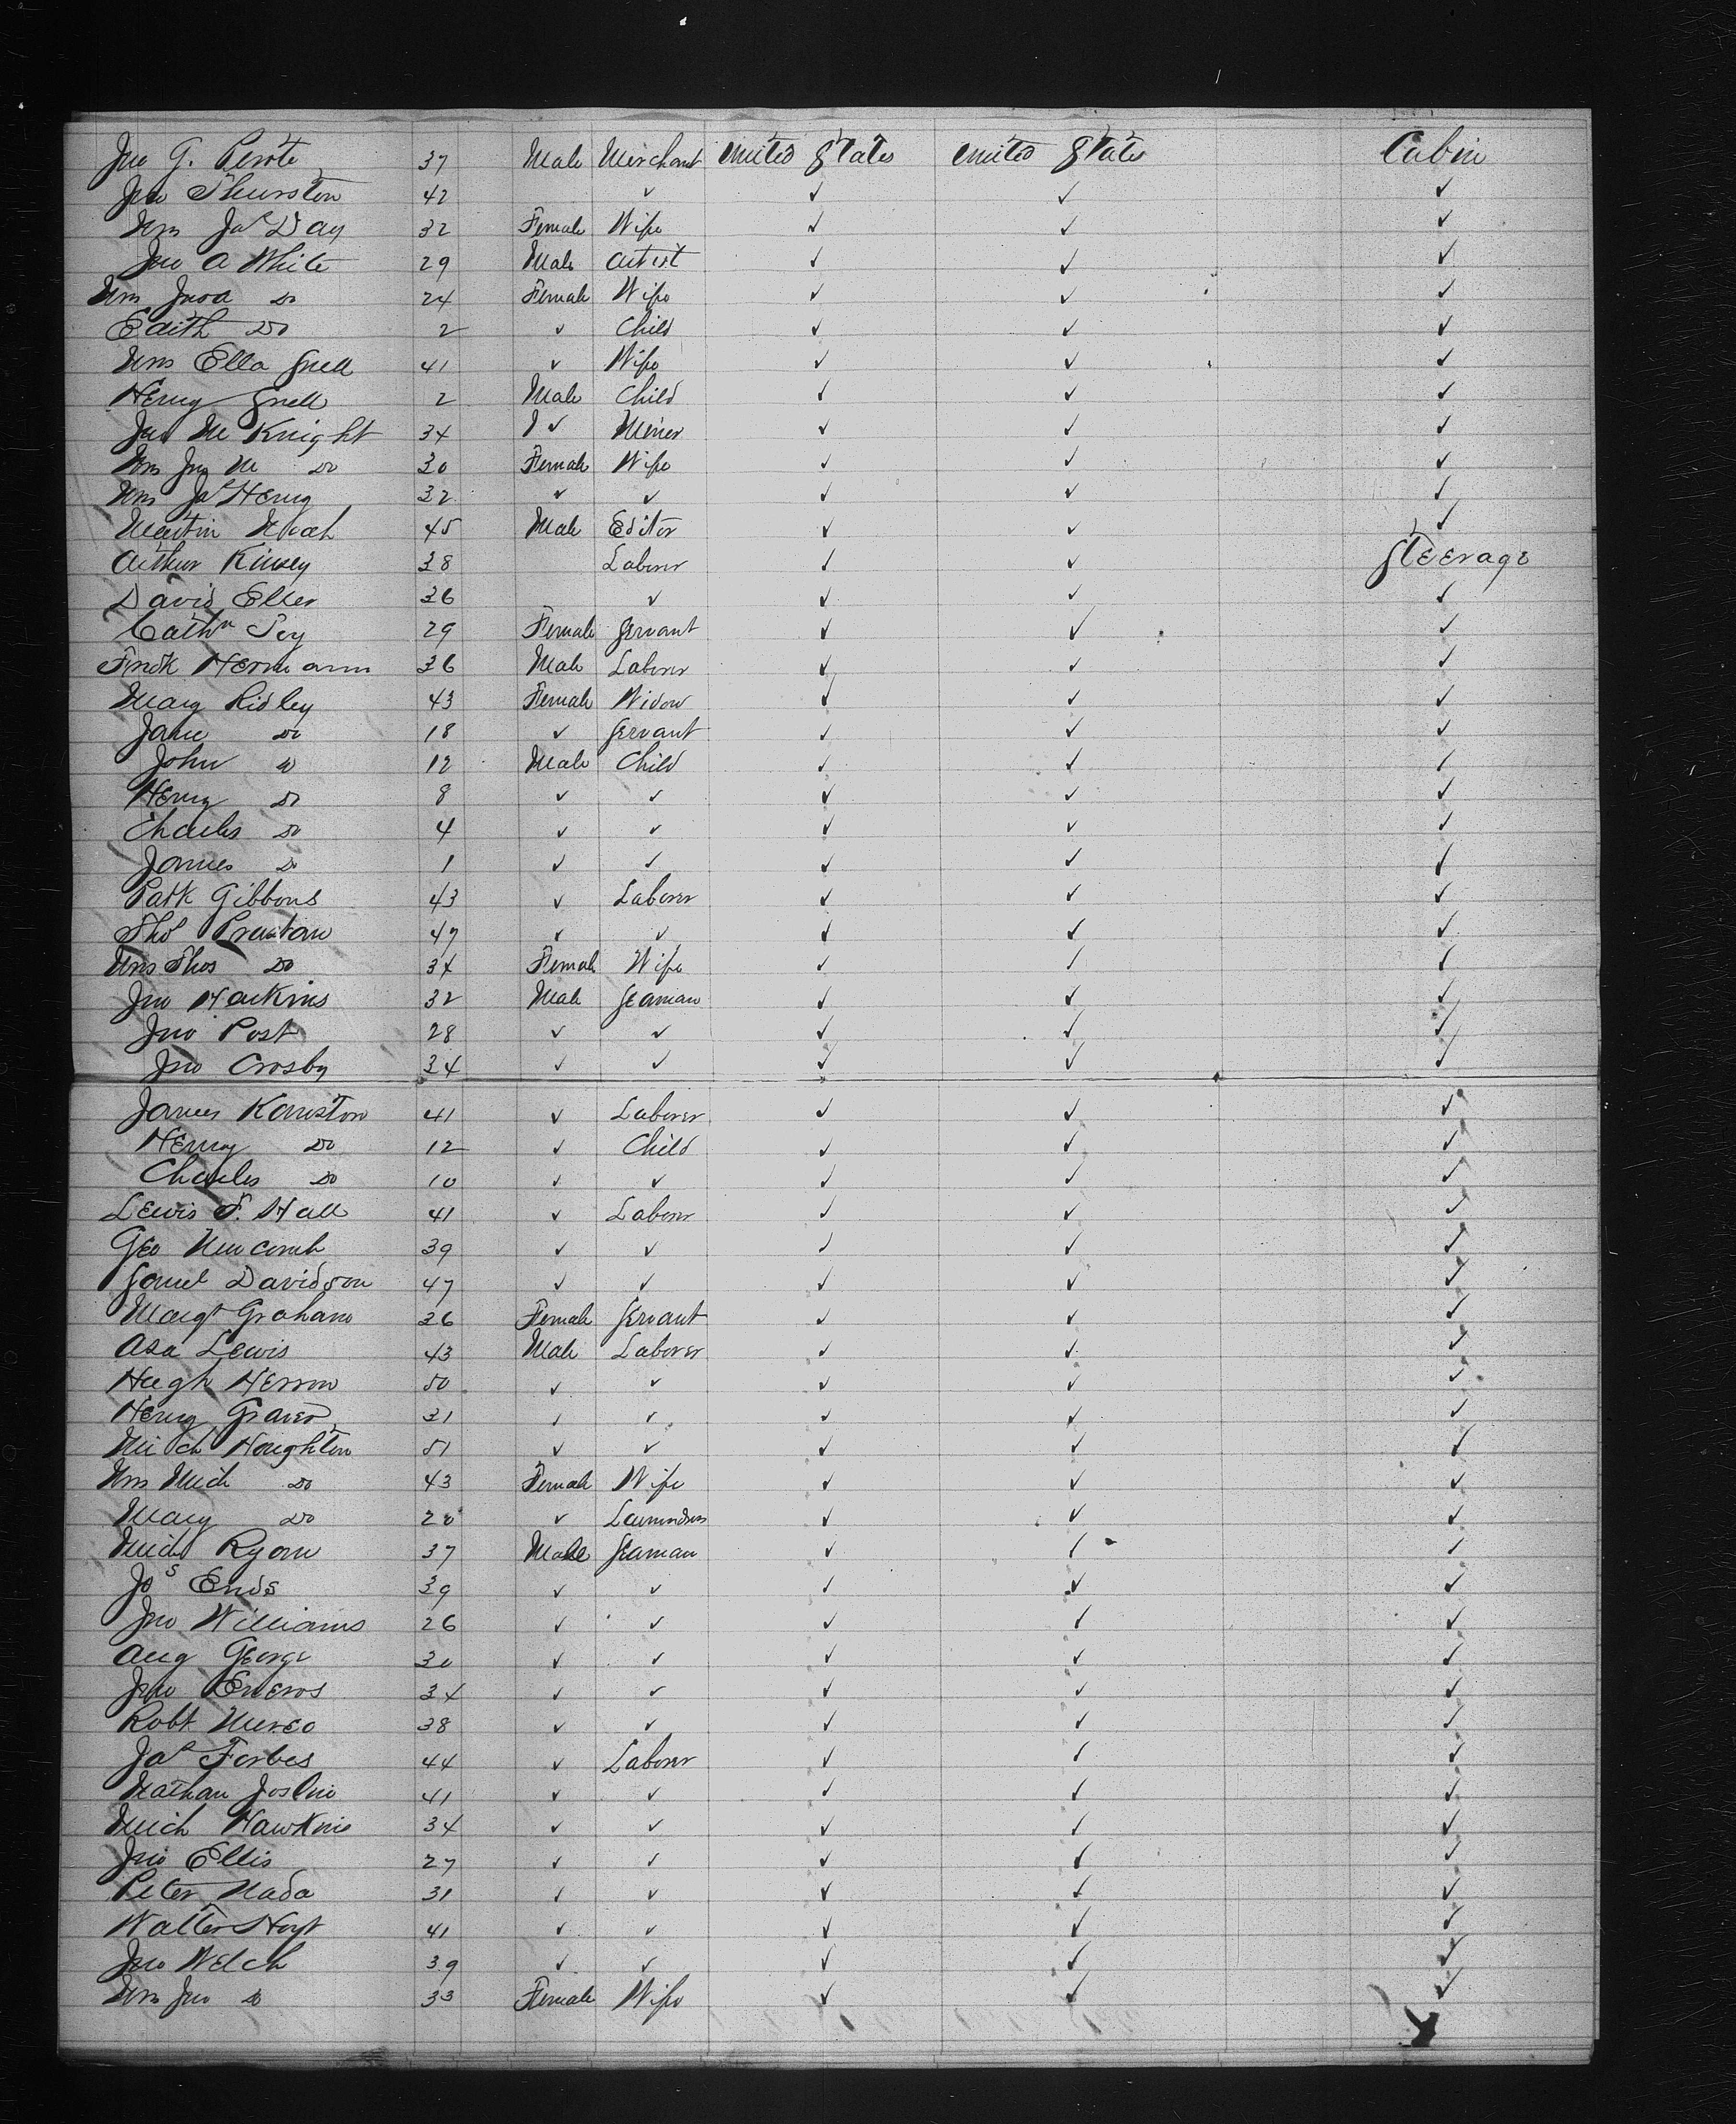 Jno G. Perote 37 Male Merchant United States United States Cabin
Jno Thurston 42 ✓ ✓ ✓ ✓
Mrs Jas Day 32 Female Wife ✓ ✓ ✓
Jno A White 29 Male Artist ✓ ✓ ✓
Mrs Jno A Do 24 Female Wife ✓ ✓ ✓
Edith Do 2 ✓ Child ✓ ✓ ✓
Mrs Ella Snell 41 ✓ Wife ✓ ✓ ✓
Henry Snell 2 Male Child ✓ ✓ ✓
Jas M Knight 34 ✓ Miner ✓ ✓ ✓
Mrs Jas M Do 30 Female Wife ✓ ✓ ✓
Mrs Jas Henry 32 ✓ ✓ ✓ ✓ ✓
Martin Noah 45 Male Editor ✓ ✓ ✓
Arthur Kinsey 38 Laborer ✓ ✓ Steerage
David Elser 36 ✓ ✓ ✓ ✓
Cathn Joy 29 Female Servant ✓ ✓ ✓
Fredk Hermann 36 Male Laborer ✓ ✓ ✓
Mary Ridley 43 Female Widow ✓ ✓ ✓
Jane Do 18 ✓ Servant ✓ ✓ ✓
John Do 12 Male Child ✓ ✓ ✓
Henry Do 8 ✓ ✓ ✓ ✓ ✓
Charles Do 4 ✓ ✓ ✓ ✓ ✓
James Do 1 ✓ ✓ ✓ ✓ ✓
Patk Gibbons 43 ✓ Laborer ✓ ✓ ✓
Thos Preston 47 ✓ ✓ ✓ ✓ ✓
Mrs Thos Do 34 Female Wife ✓ ✓ ✓
Jno Harkins 32 Male Seaman ✓ ✓ ✓
Jno Post 28 ✓ ✓ ✓ ✓ ✓
Jno Crosby 34 ✓ ✓ ✓ ✓ ✓
James Kanston 41 ✓ Laborer ✓ ✓ ✓
Henry Do 12 ✓ Child ✓ ✓ ✓
Charles Do 10 ✓ ✓ ✓ ✓ ✓
Lewis F. Hall 41 ✓ Laborer ✓ ✓ ✓
Geo Newcomb 39 ✓ ✓ ✓ ✓ ✓
Saml Davidson 47 ✓ ✓ ✓ ✓ ✓
Margt Graham 36 Female Servant ✓ ✓ ✓
Asa Lewis 43 Male Laborer ✓ ✓ ✓
Hugh Herron 50 ✓ ✓ ✓ ✓ ✓
Henry Graves 31 ✓ ✓ ✓ ✓ ✓
Mich Houghton 51 ✓ ✓ ✓ ✓ ✓
Mrs Mich Do 43 Female Wife ✓ ✓ ✓
Mary Do 20 ✓ Laundress ✓ ✓ ✓
Michl Ryan 37 Male Seaman ✓ ✓ ✓
Jos Ends 39 ✓ ✓ ✓ ✓ ✓
Jno Williams 26 ✓ ✓ ✓ ✓ ✓
Aug George 30 ✓ ✓ ✓ ✓ ✓
Jno Eneros 34 ✓ ✓ ✓ ✓ ✓
Robt 38 ✓ ✓ ✓ ✓ ✓
Jas Forbes 44 ✓ Laborer ✓ ✓ ✓
Nathan Joslin 41 ✓ ✓ ✓ ✓ ✓
Mich Hawkins 34 ✓ ✓ ✓ ✓ ✓
Jno Ellis 27 ✓ ✓ ✓ ✓ ✓
Peter Nada 31 ✓ ✓ ✓ ✓ ✓
Walter Hoyt 41 ✓ ✓ ✓ ✓ ✓
Jno Welch 39 ✓ ✓ ✓ ✓ ✓
Mrs Jno Do 33 Female Wife ✓ ✓ ✓